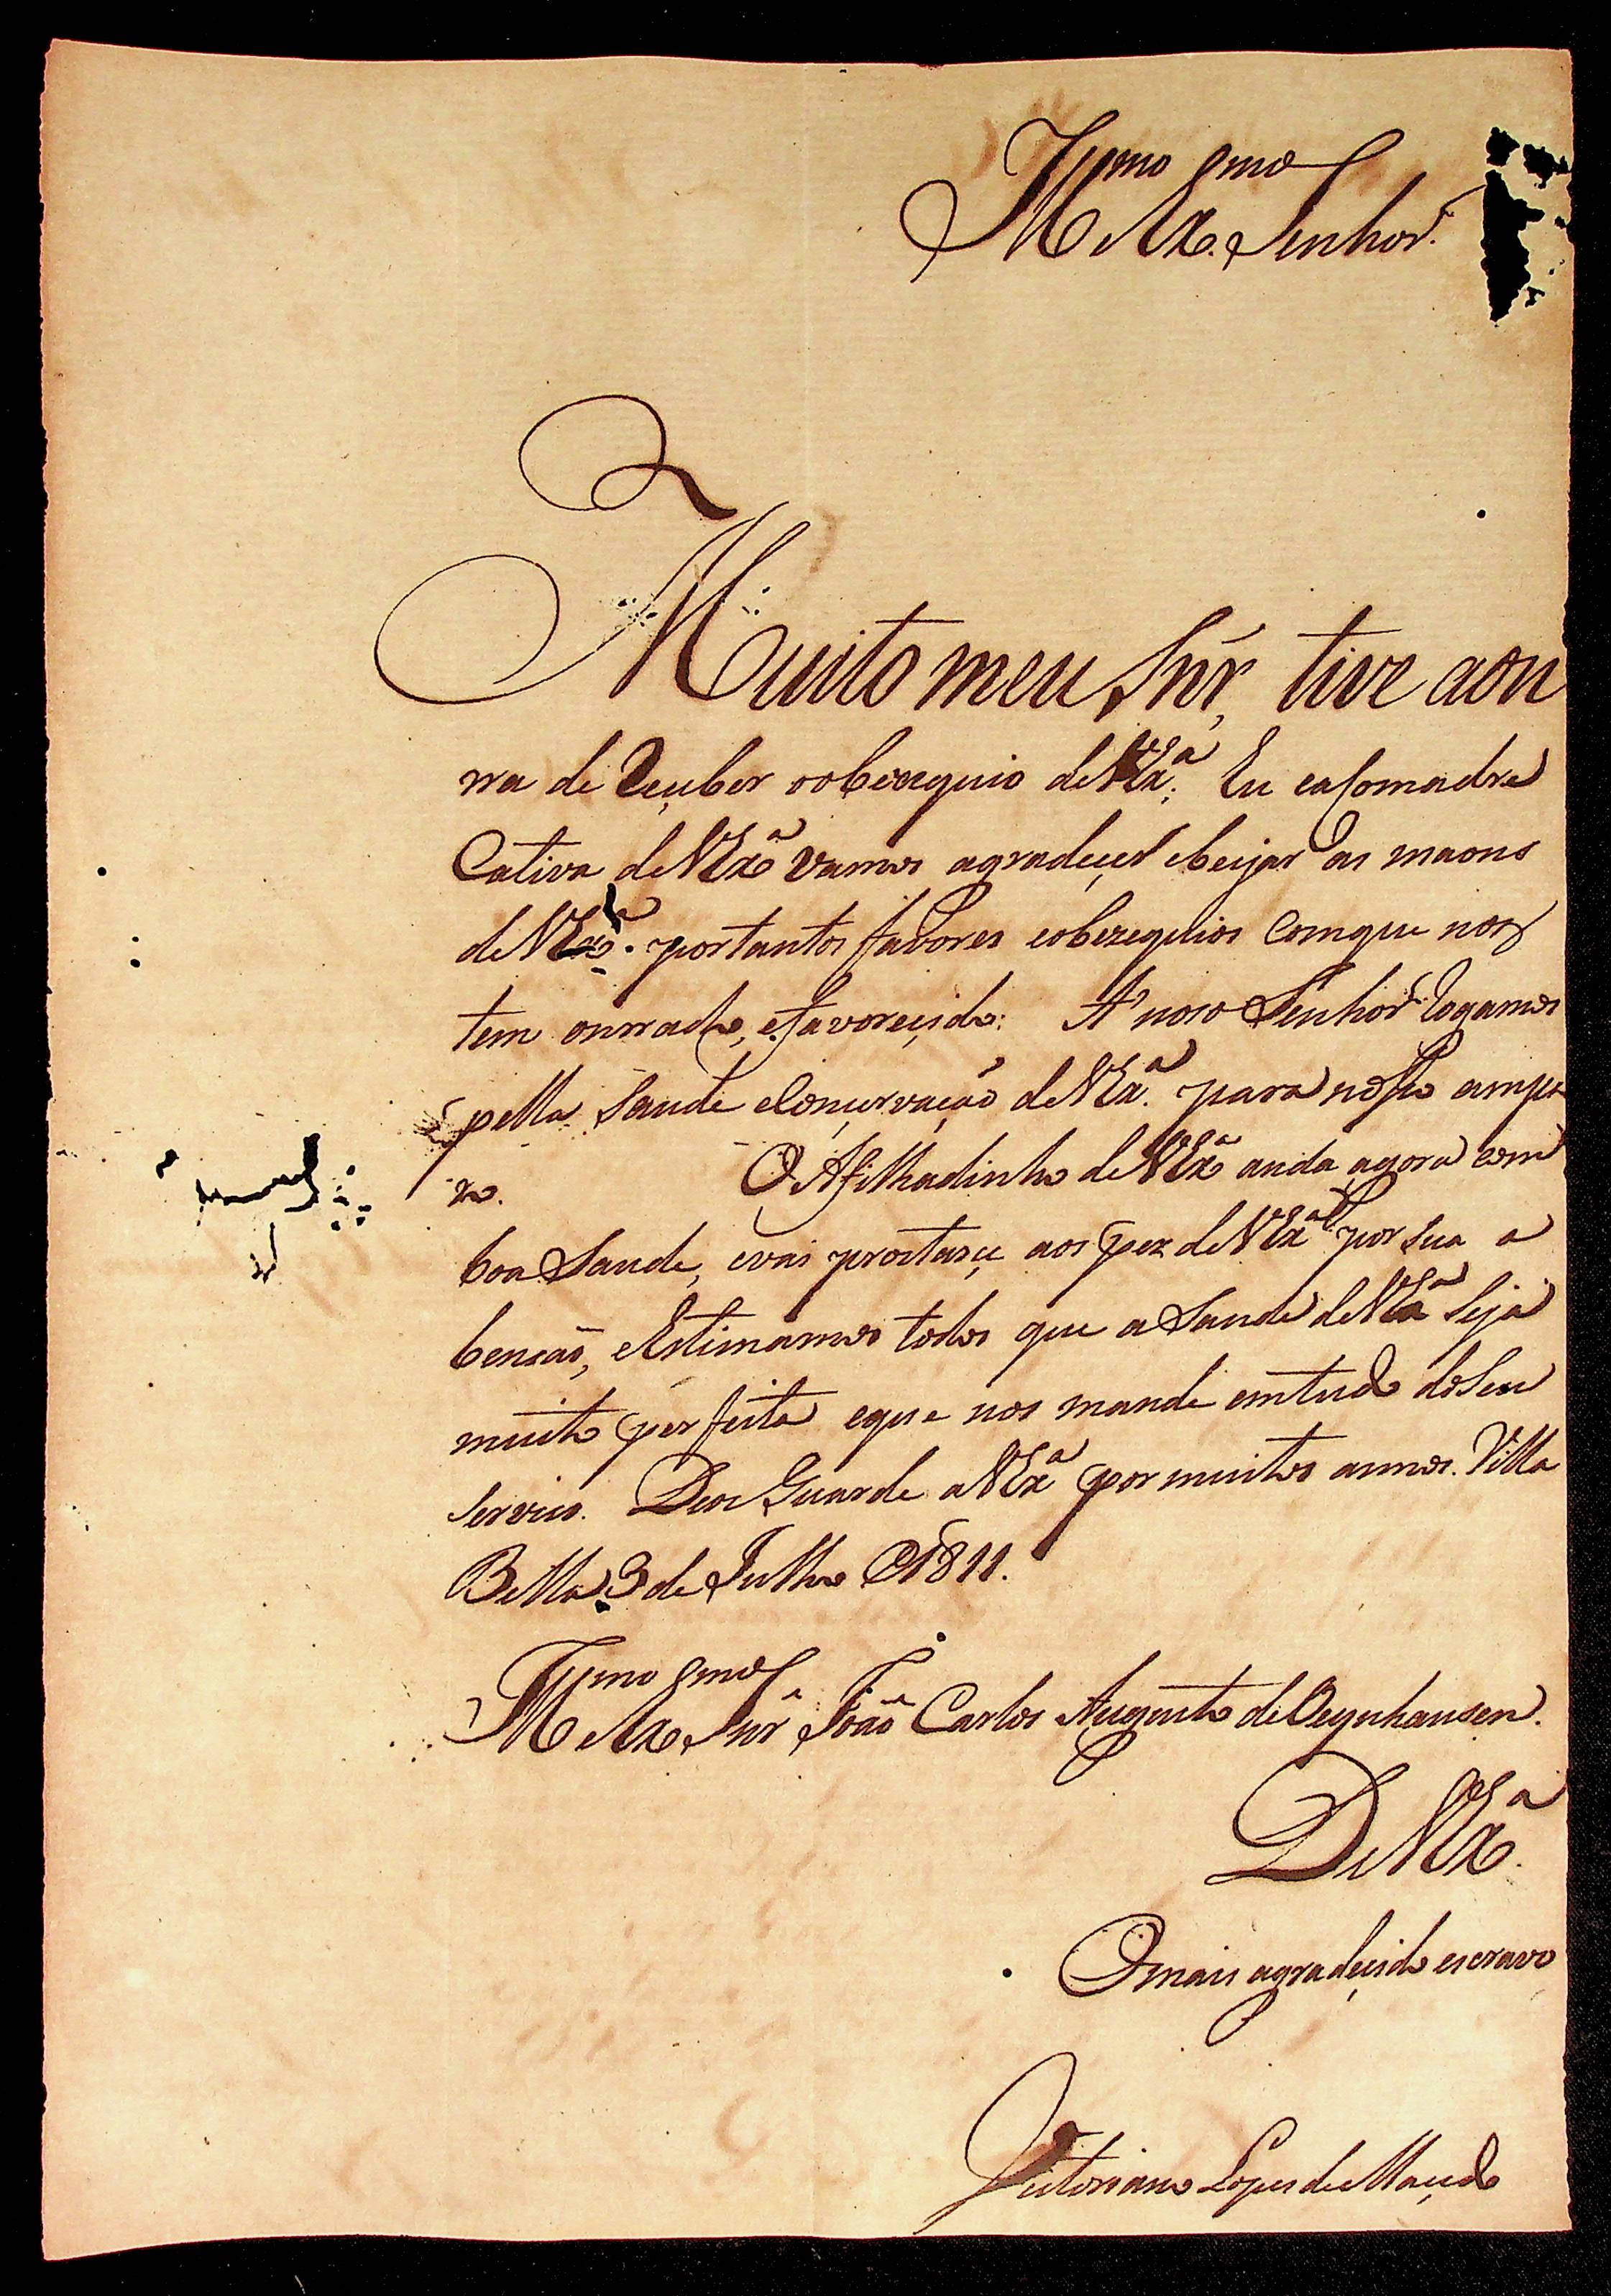 Ill.mo e Ex.mo Senhor.
Muito meu Snr, tive aon
rra de Reçuber oobezequio de VEx.ª; Eu eaComadre
Cativa de VEx.ª Vamos agradeçer ebeijar as maons
de VEx.ª. portantos favores eobezequios Comque nos
tem onrrado, efavoreçido: A' noso Senhor Rogamos
pella Saude eConçervação de VEx.ª. para nosso ampa
ro. O Afilhadinho de VEx.ª anda agora com
boa Saude, evai prostarçe aos pez de VEx.ª por sua a
bensão, eEstimamos todos que a Saude de VEx.ª Seja
muito perfeita eque nos mande emtudo doSeu
Serviço. Deos Guarde a VEx.ª por muitos annos. Villa
Bella 3 de Julho @ 1811.
Ill.mo e Ex.mo Snr João Carlos Augusto de Oeynhausen.
De VEx.ª
O mais agradeçido escravo
Victoriano Lopes de Maçedo